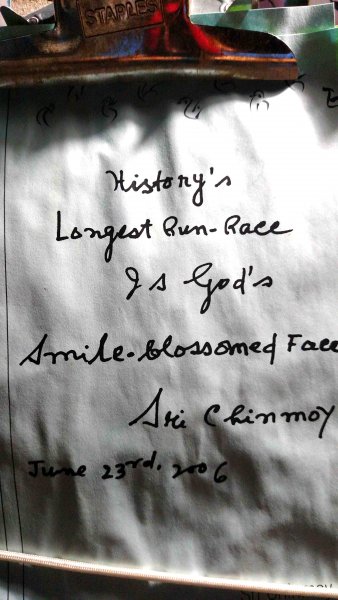 STAPLES
History's
Longest Run-Race
Is God's
Smile-blossomed Face
Sri Chinmoy
June 23rd, 2006